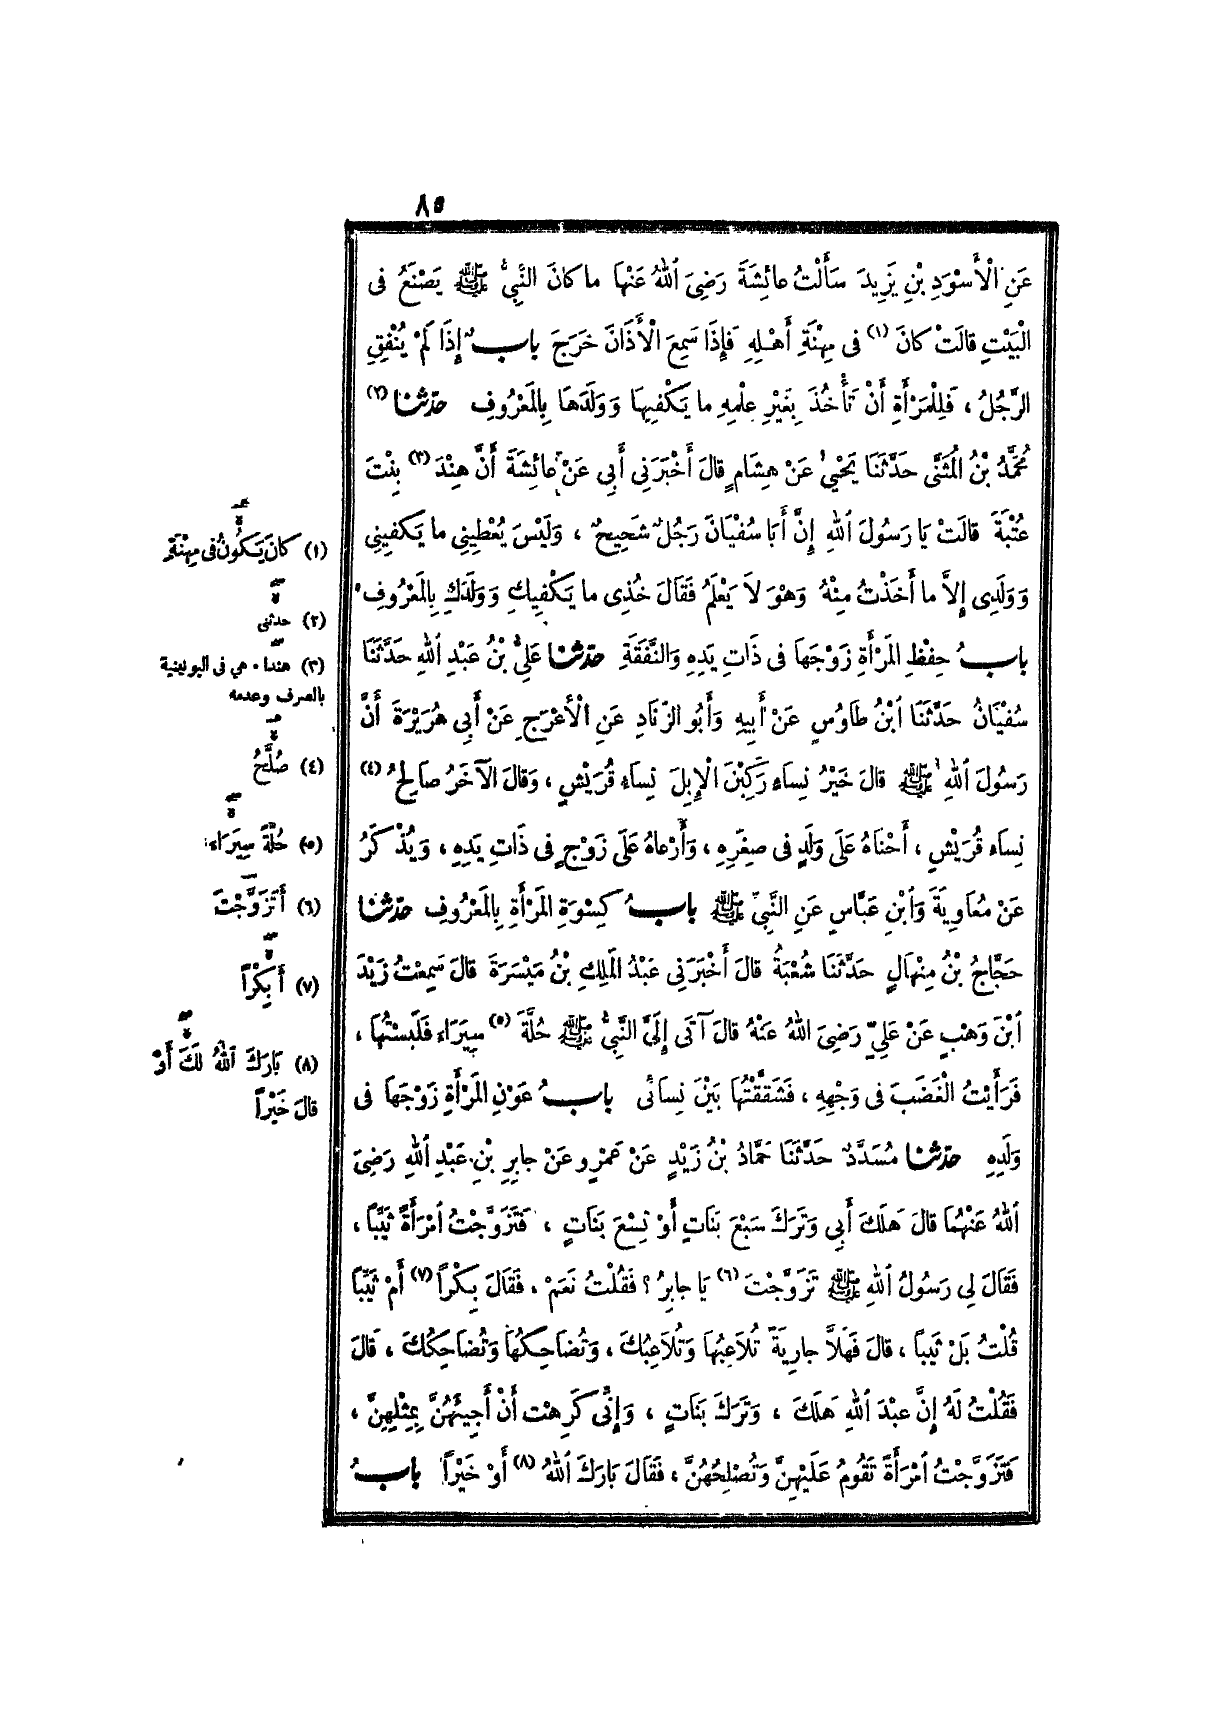 ٨٥
عَنِ الْأَسْوَدِ بْنِ يَزِيدَ سَأَلْتُ عائِشَةَ رَضِىَ ٱللهُ عَنْهَا ما كانَ النَّبِىُّ ﷺ يَصْنَعُ فى
الْبَيْتِ قالَتْ كانَ (١) فى مِهْنَةِ أَهْلِهِ فَإِذَا سَمِعَ الْأَذَانَ خَرَجَ بابٌ إِذَا لَمْ يُنْفِقِ
الرَّجُلُ ، فَلِلْمَرْأَةِ أَنْ تَأْخُذَ بِغَيْرِ عِلْمِهِ ما يَكْفِيهَا وَوَلَدَهَا بِالمَعْرُوفِ حدّثنا (٢)
مُحَمَّدُ بْنُ الْمُثَنَّى حَدَّثَنَا يَحْيٰى عَنْ هِشَامٍ قالَ أَخْبَرَنِى أَبِى عَنْ عائِشَةَ أَنَّ هِنْدَ (٣) بِنْتَ
عُتْبَةَ قالَتْ يَا رَسُولَ ٱللهِ إِنَّ أَبَا سُفْيَانَ رَجُلٌ شَحِيحٌ ، وَلَيْسَ يُعْطِينِى ما يَكْفِينِى
وَوَلَدِى إِلاَّ ما أَخَذْتُ مِنْهُ وَهْوَ لاَ يَعْلَمُ فَقَالَ خُذِى ما يَكْفِيكِ وَوَلَدَكِ بِالمَعْرُوفِ
بابُ حِفْظِ المَرْأَةِ زَوْجَهَا فى ذَاتِ يَدِهِ وَالنَّفَقَةِ حدّثنا عَلِىُّ بْنُ عَبْدِ ٱللهِ حَدَّثَنَا
سُفْيَانُ حَدَّثَنَا ٱبْنُ طَاوُسٍ عَنْ أَبِيهِ وَأَبُو الزِّنَادِ عَنِ الْأَعْرَجِ عَنْ أَبِى هُرَيْرَةَ أَنَّ
رَسُولَ ٱللهِ ﷺ قالَ خَيْرُ نِسَاءٍ رَكِبْنَ الْإِبِلَ نِسَاءُ قُرَيْشٍ ، وَقالَ الآخَرُ صَالِحُ (٤)
نِسَاءِ قُرَيْشٍ ، أَحْنَاهُ عَلَى وَلَدٍ فى صِغَرِهِ ، وَأَرْعاهُ عَلَى زَوْجٍ فى ذَاتِ يَدِهِ ، وَيُذْكَرُ
عَنْ مُعَاوِيَةَ وَٱبْنِ عَبَّاسٍ عَنِ النَّبِىِّ ﷺ بابُ كِسْوَةِ المَرْأَةِ بِالمَعْرُوفِ حدّثنا
حَجَّاجُ بْنُ مِنْهَالٍ حَدَّثَنَا شُعْبَةُ قالَ أَخْبَرَنِى عَبْدُ المَلِكِ بْنُ مَيْسَرَةَ قالَ سَمِعْتُ زَيْدَ
ٱبْنَ وَهْبٍ عَنْ عَلِىٍّ رَضِىَ ٱللهُ عَنْهُ قالَ آتَى إِلَىَّ النَّبِىُّ ﷺ حُلَّةَ (٥) سِيَرَاءَ فَلَبِسْتُهَا ،
فَرَأَيْتُ الْغَضَبَ فى وَجْهِهِ ، فَشَقَّقْتُهَا بَيْنَ نِسَائى بابُ عَوْنِ المَرْأَةِ زَوْجَهَا فى
وَلَدِهِ حدّثنا مُسَدَّدٌ حَدَّثَنَا حَمَّادُ بْنُ زَيْدٍ عَنْ عَمْرٍو عَنْ جابِرِ بْنِ عَبْدِ ٱللهِ رَضِىَ
ٱللهُ عَنْهُمَا قالَ هَلَكَ أَبِى وَتَرَكَ سَبْعَ بَنَاتٍ أَوْ تِسْعَ بَنَاتٍ ، فَتَزَوَّجْتُ ٱمْرَأَةً ثَيِّبًا ،
فَقَالَ لِى رَسُولُ ٱللهِ ﷺ تَزَوَّجْتَ (٦) يَا جابِرُ ؟ فَقُلْتُ نَعَمْ ، فَقَالَ بِكْرًا (٧) أَمْ ثَيِّبًا
قُلْتُ بَلْ ثَيِّبًا ، قالَ فَهَلاَّ جارِيَةً تُلاَعِبُهَا وَتُلاَعِبُكَ ، وَتُضَاحِكُهَا وَتُضَاحِكُكَ ، قالَ
فَقُلْتُ لَهُ إِنَّ عَبْدَ ٱللهِ هَلَكَ ، وَتَرَكَ بَنَاتٍ ، وَإِنِّى كَرِهْتُ أَنْ أَجِيئَهُنَّ بِمِثْلِهِنَّ ،
فَتَزَوَّجْتُ ٱمْرَأَةً تَقُومُ عَلَيْهِنَّ وَتُصْلِحُهُنَّ ، فَقَالَ بَارَكَ ٱللهُ (٨) أَوْ خَيْرًا بابُ
(١) كانَ يَكُونُ فى مِهْنَةِ
(٢) حدثنى
(٣) هندا ٠ هي فى اليونينية
بالصرف وعدمه
(٤) صُلَّحُ
(٥) حُلَّةً سِيَرَاءَ
(٦) أَتَزَوَّجْتَ
(٧) أَبِكْرًا
(٨) بَارَكَ ٱللهُ لَكَ أَوْ
قالَ خَيْرًا